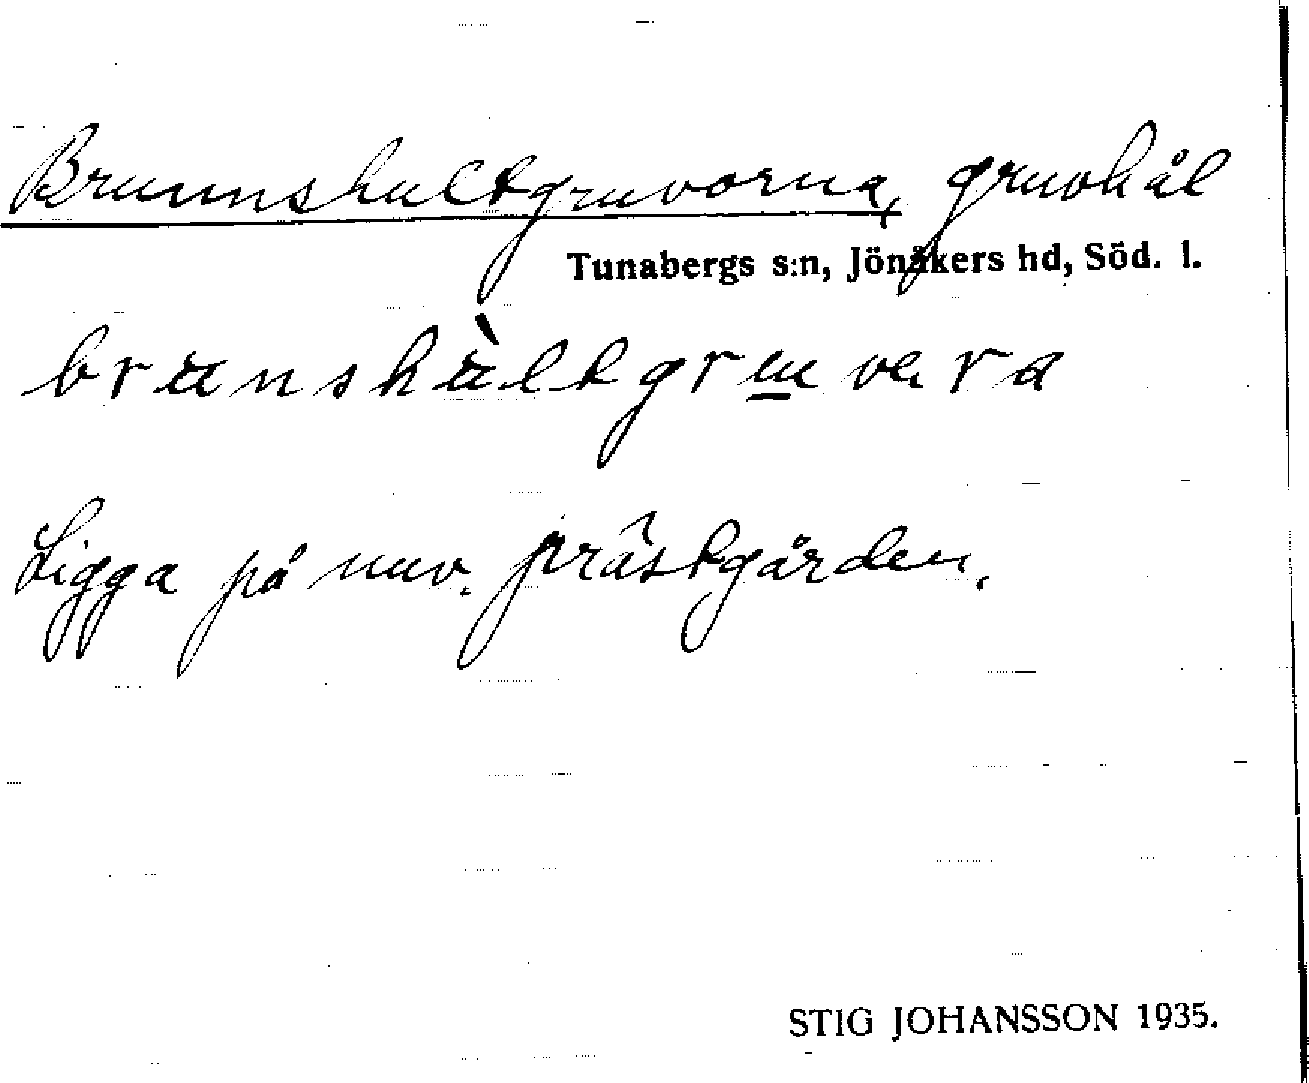 Brunnshultgruvorna, gruvhål
Tunabergs s:n, Jönåkers hd, Söd. l.
Ligga på nuv. prästgården.
STIG JOHANSSON 1935.